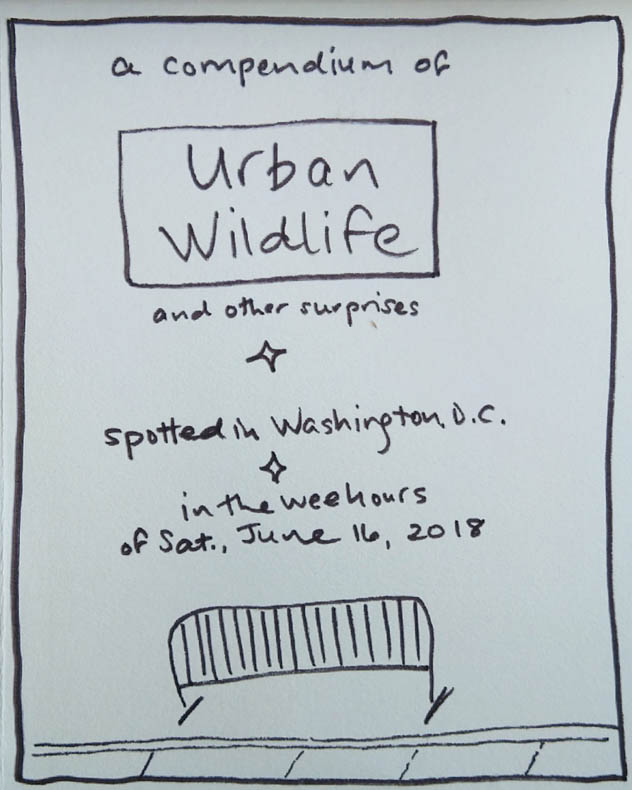 a compendium of
Urban
Wildlife
and other surprises
spotted in Washington, D.C.
in the wee hours
of Sat., June 16, 2018